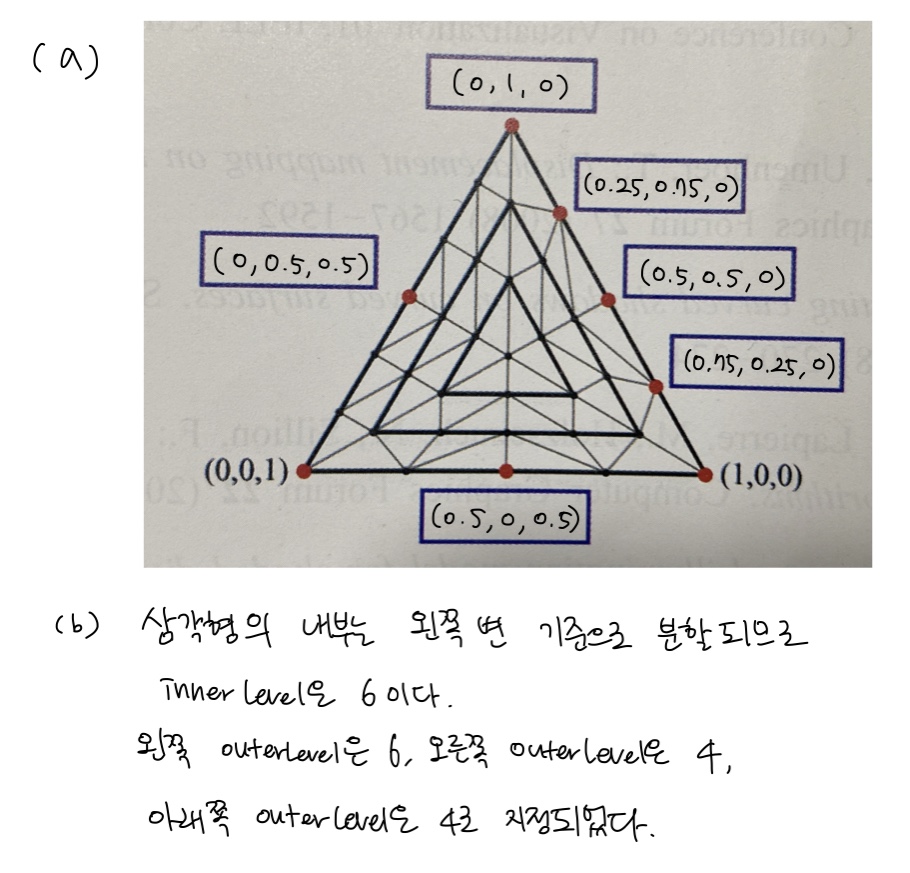 (a)
(0, 1, 0)
(0.25, 0.75, 0)
(0, 0.5, 0.5)
(0.5, 0.5, 0)
(0.75, 0.25, 0)
(0,0,1)
(1,0,0)
(0.5, 0, 0.5)
(b) 삼각형의 내부는 왼쪽 변 기준으로 분할되므로
inner level은 6이다.
왼쪽 outerlevel은 6, 오른쪽 outerlevel은 4,
아래쪽 outerlevel은 4로 지정되었다.